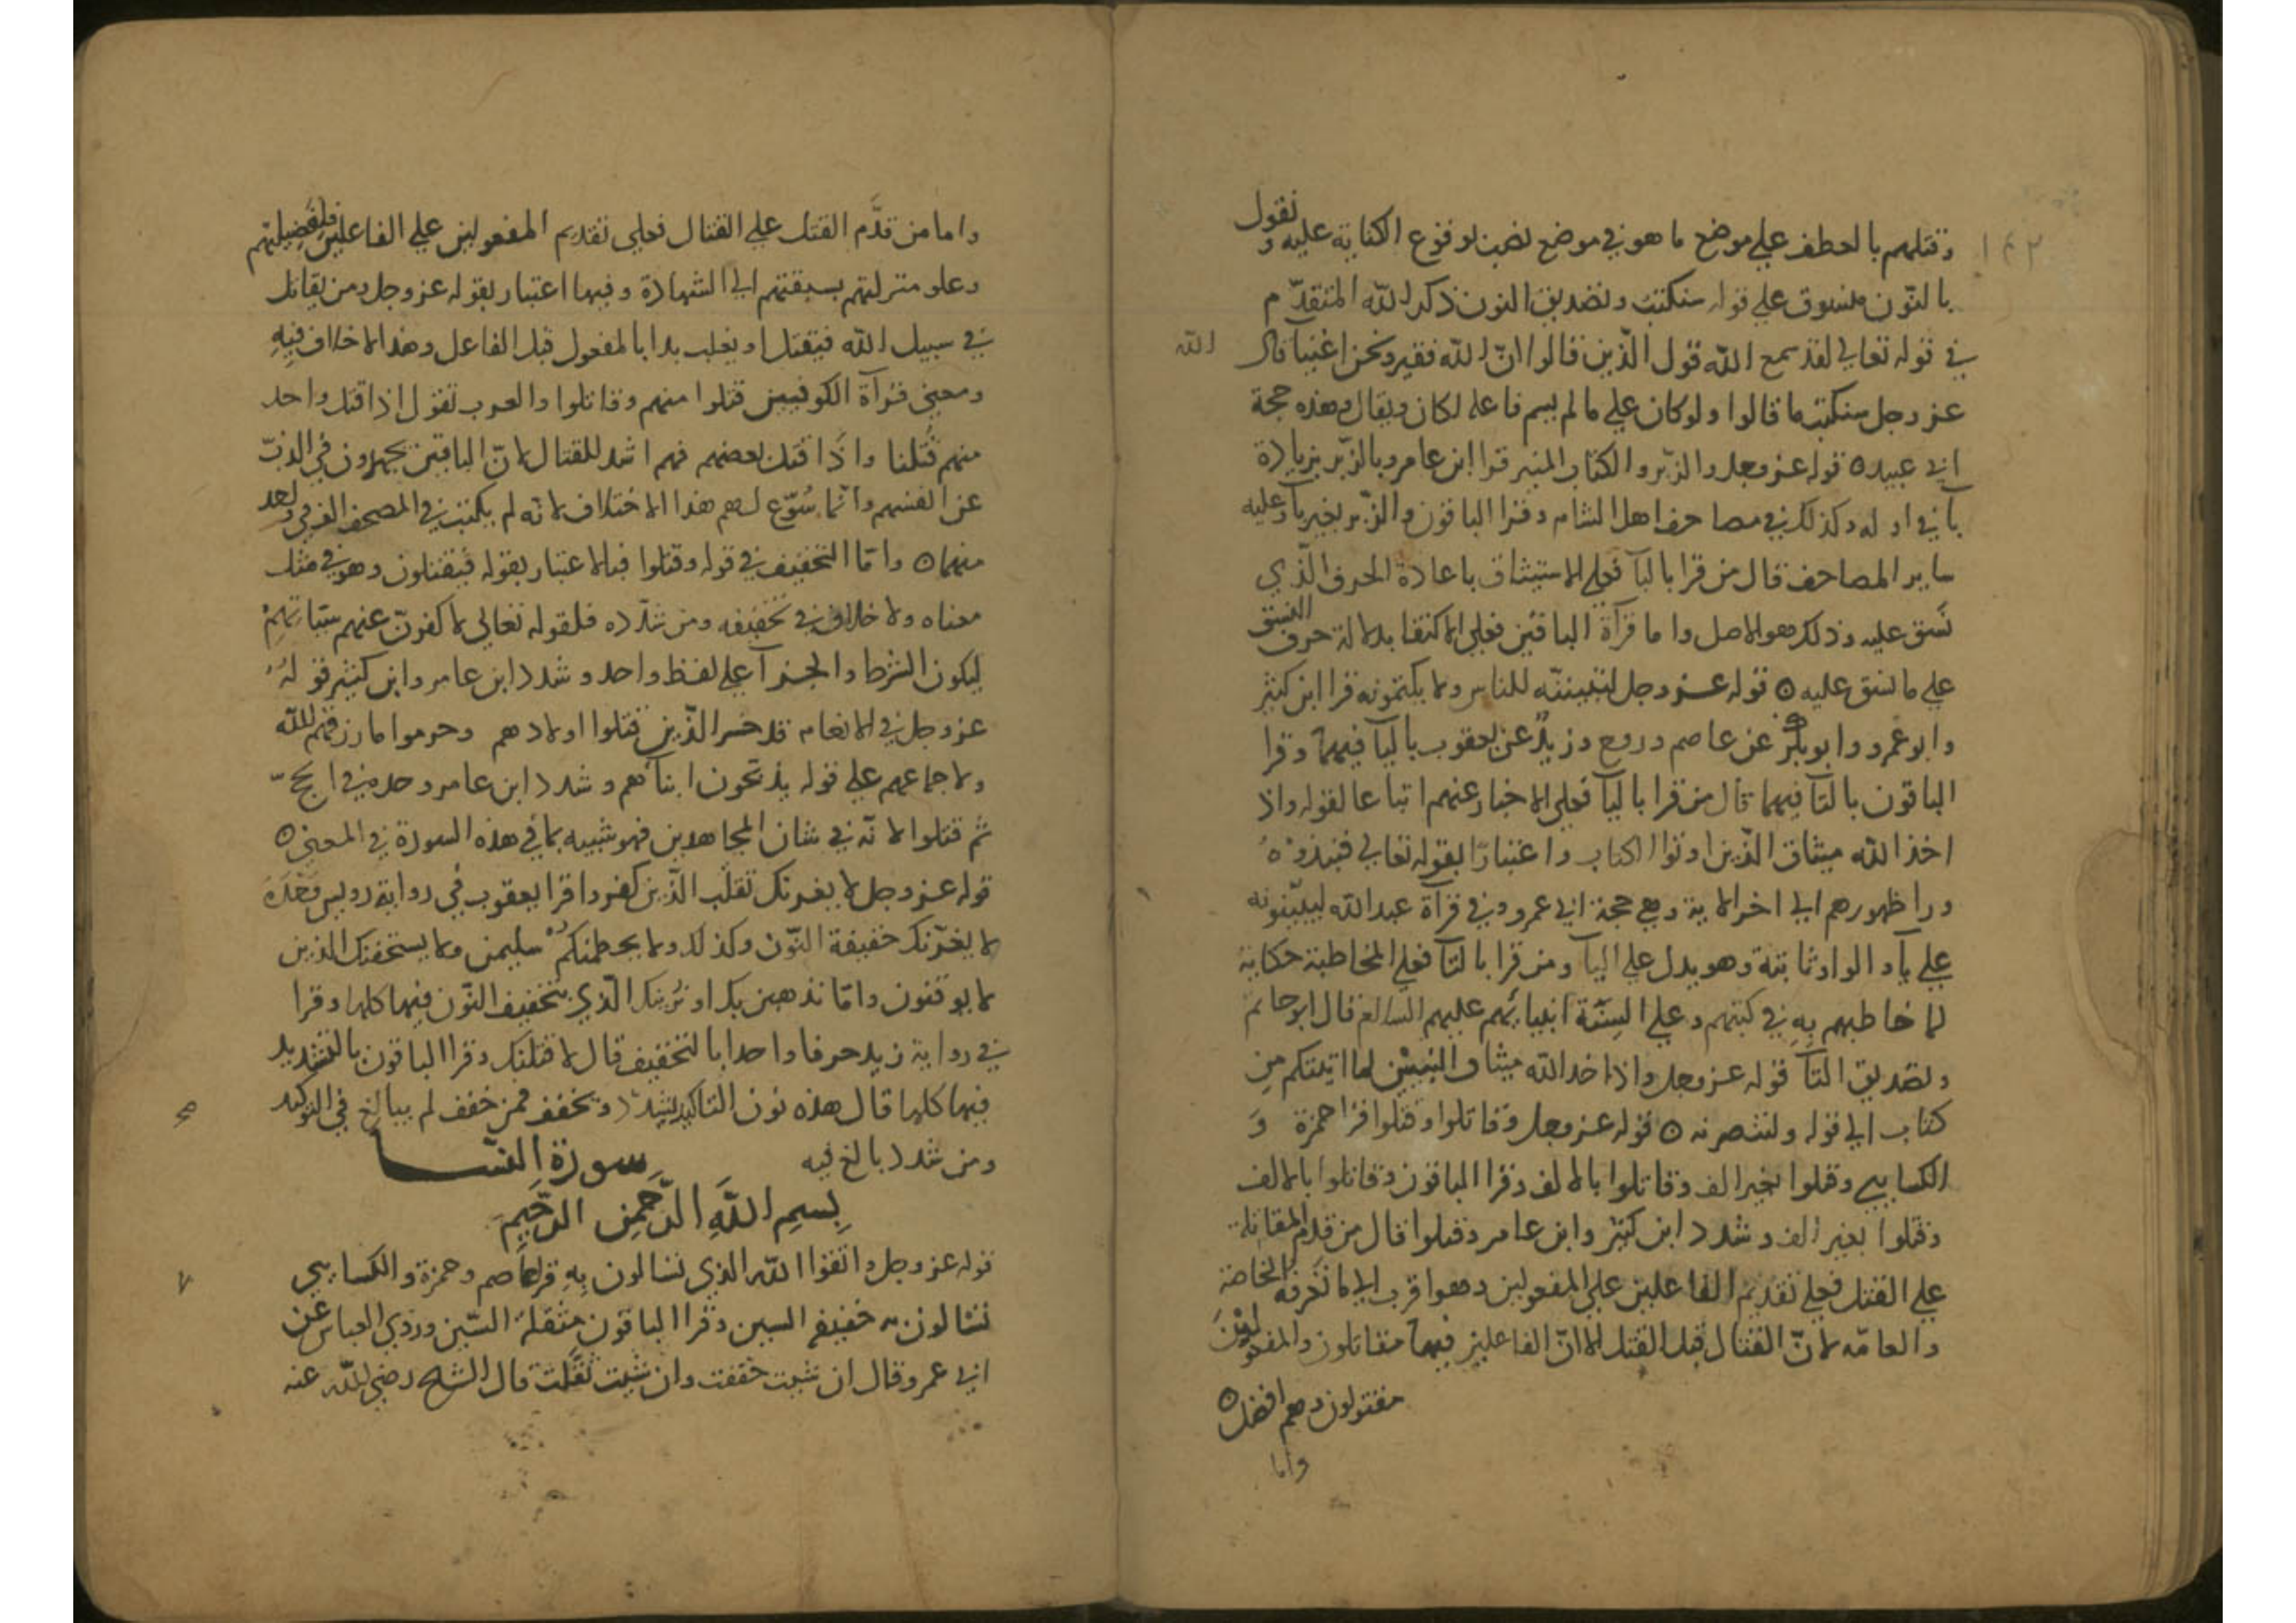 ١٤٢
وقتلهم بالعطف علي موضع ما هو في موضع نصب لوقوع الكتابة عليه ونقول
بالنّون منسوق علي قوله سنكتب وتصديق النون ذكر الله المتقدّم
في قوله تعالي لقد سمع الله قول الّذين قالوا انّ الله فقير ونحن اغنيا قال الله
عز وجل سنكتب ما قالوا ولو كان علي ما لم يسم فاعله لكان ويقال وهذه حجة
ابي عبيد ٥ قوله عز وجل والزّبر والكتاب المنير قرا ابن عامر وبالزّبر بزيادة
بآ في اوله وكذلك في مصاحف اهل الشام وقرا الباقون والزّبر بغير بآ وعليه
ساير المصاحف قال من قرا بالبآ فعلي الاستيثاق باعادة الحرف الّذي
نَسق عليه وذلك هو الاصل واما قرآة الباقين فعلي الاكتفا بدلالة حرف النسق
علي ما نسق عليه ٥ قوله عز وجل لتبيننّه للناس ولا يكتمونه قرا ابن كثير
وابو عمرو وابو بكر عن عاصم وروح وزيد عن يعقوب باليآ فيهما وقرا
الباقون بالتآ فيهما قال من قرا باليآ فعلي الاخبار عنهم اتباعا لقوله واذ
اخذ الله ميثاق الّذين اوتوا الكتاب واعتبارًا بقوله تعالي فنبذوه
ورا ظهورهم الي اخر الاية وهي حجة ابي عمرو وفي قرآة عبد الله ليبيّنونه
علي يآ والواو ثابتة وهو يدل علي اليآ ومن قرا بالتآ فعلي المخاطبة حكاية
لما خاطبهم بِهِ في كتبهم وعلي السِنَّة انبيائهم عليهم السالم قال ابو حاتم
وتصديق التآ قوله عز وجل واذ اخد الله ميثاق النبيّن لما اتيتكم مِن
كتاب الي قوله ولتنصرنه ٥ قوله عز وجل وقاتلوا وقتلوا قرا حمزة وَ
الكسايي وقتلوا بغير الف وقاتلوا بالالف وقرا الباقون وقاتلوا بالالف
وقتلوا بغير الف وشدد ابن كثير وابن عامر وقتلوا قال من قدم المقاتلة
علي القتل فعلي تقديم الفاعلين علي المفعولين وهو اقرب الي ما تَعرفه الخاصّة
والعامّه لانّ القتال قبل القتل الا انّ الفاعلين فيهما مقاتلون والمفعولِيْنَ
مقتولون وهم افضل ٥
واما
واما من قدَّم القتل علي القتال فعلي تقديم المفعولين علي الفاعلين لفضيلتهم
وعلو منزلتهم بسبقتهم الي الشهادة وفيها اعتبار بقوله عز وجل ومن يقاتل
في سبيل الله فيقتل او يغلب بدا بالمفعول قبل الفاعل وهذا لا خلاف فيه
ومعني قرآة الكوفيين قتلوا منهم وقاتلوا والعرب تقول اذا قتل واحد
منهم قُتلنا واذا قتل بعضهم فهم اشد للقتال لانّ الباقين يجهدون في الذبّ
عن انفسهم وانّما سُوّغ لهم هذا الاختلاف لانه لم يكتب في المصحف الف في واحد
منهما ٥ وامّا التخفيف في قوله وقتلوا فبالاعتبار بقوله فيقتلون وهو في مثل
معناه ولا خلاف في تخفيفه ومن شدّده فلقوله تعالي لاكفرنّ عنهم سيّاتهِمْ
ليكون الشرط والجزآ علي لفظ واحد وشدد ابن عامر وابن كثير قولهُ
عز وجل في الانعام قد خسر الذّين قتلوا اولادهم وحرموا ما رزقهم الله
ولاجماعهم علي قوله يذبّحون ابنآهم وشدد ابن عامر وحده في الحجّ
ثم قتلوا لانّه في شان المجاهدين فهو شبيه بما في هذه السورة في المعني ٥
قوله عز وجل لا يغرنك تقلّب الّذين كفروا قرا يعقوب في رواية رويس وَحْدَهُ
لا يغرّنك خفيفة النّون وكذلك ولا يحطمنكمْ سليمن ولا يستخفنك الذين
لا يوقنون وامّا نذهبن بك او نُرينك الّذي بتخفيف النّون فيها كلها وقرا
في رواية زيد حرفا واحدا بالتخفيف قال لاقتلنك وقرا الباقون بالتشديد
فيها كلها قال هذه نون التاكيد يشدد ويخفف فمن خفف لم يبالغ في التوكيد
ومن شدد بالغ فيه سورة النسا
بِسمِ اللَّهِ الرَّحمنِ الرَّحِيمِ
قوله عز وجل واتقوا الله الذي تسالون بِهِ قرا عاصم وحمزة والكسايي
تسالون به خفيفة السين وقرا الباقون مثقلة السّين وروي العباس عن
ابي عمرو وقال ان شيت خففت وان شيت ثقّلت قال الشيخ رضي الله عنه